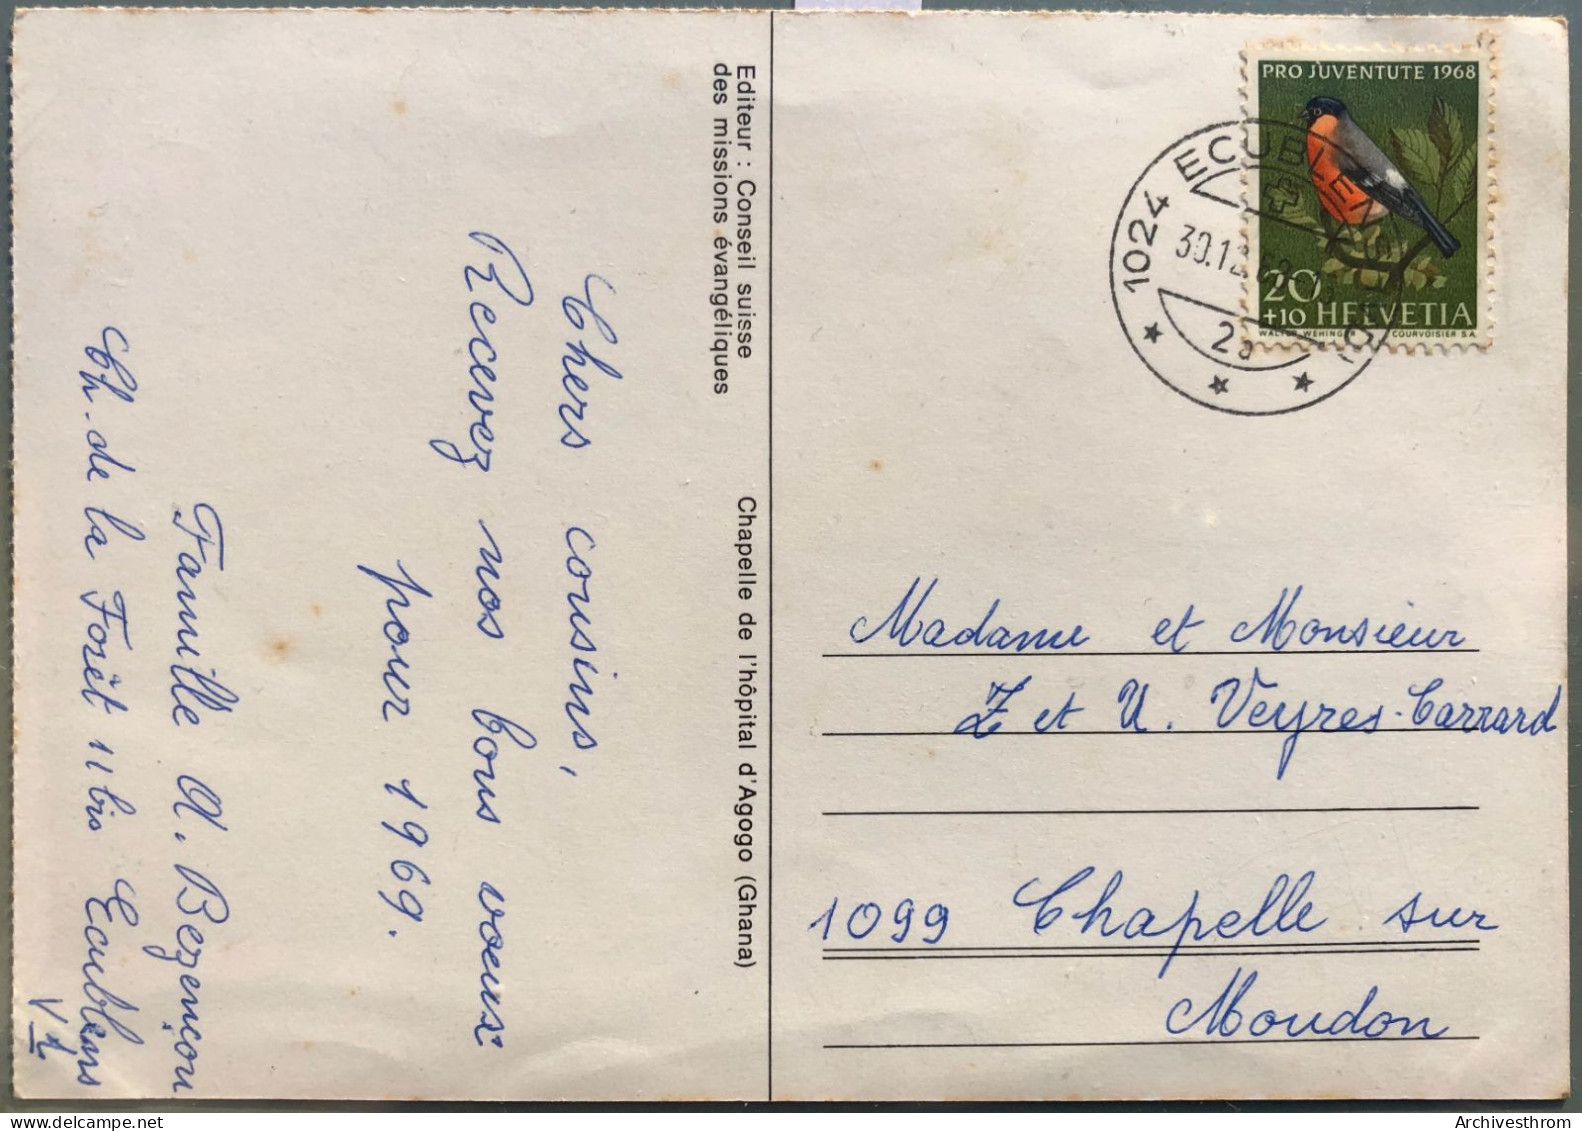 Editeur : Conseil suisse
des missions évangéliques
Chapelle de l'hôpital d'Agogo (Ghana)
Chers cousins,
Recevez nos bons voeux
pour 1969.
Famille A. Bezençon
Ch. de la Forêt 11 bis Ecublens
PRO JUVENTUTE 1968
20
+10 HELVETIA
COURVOISIER S.A.
1024 ECUBLENS
30.12.68
2a
Madame et Monsieur
Z et U. Veyres-Carrard
1099 Chapelle sur
Moudon
Archivesthrom